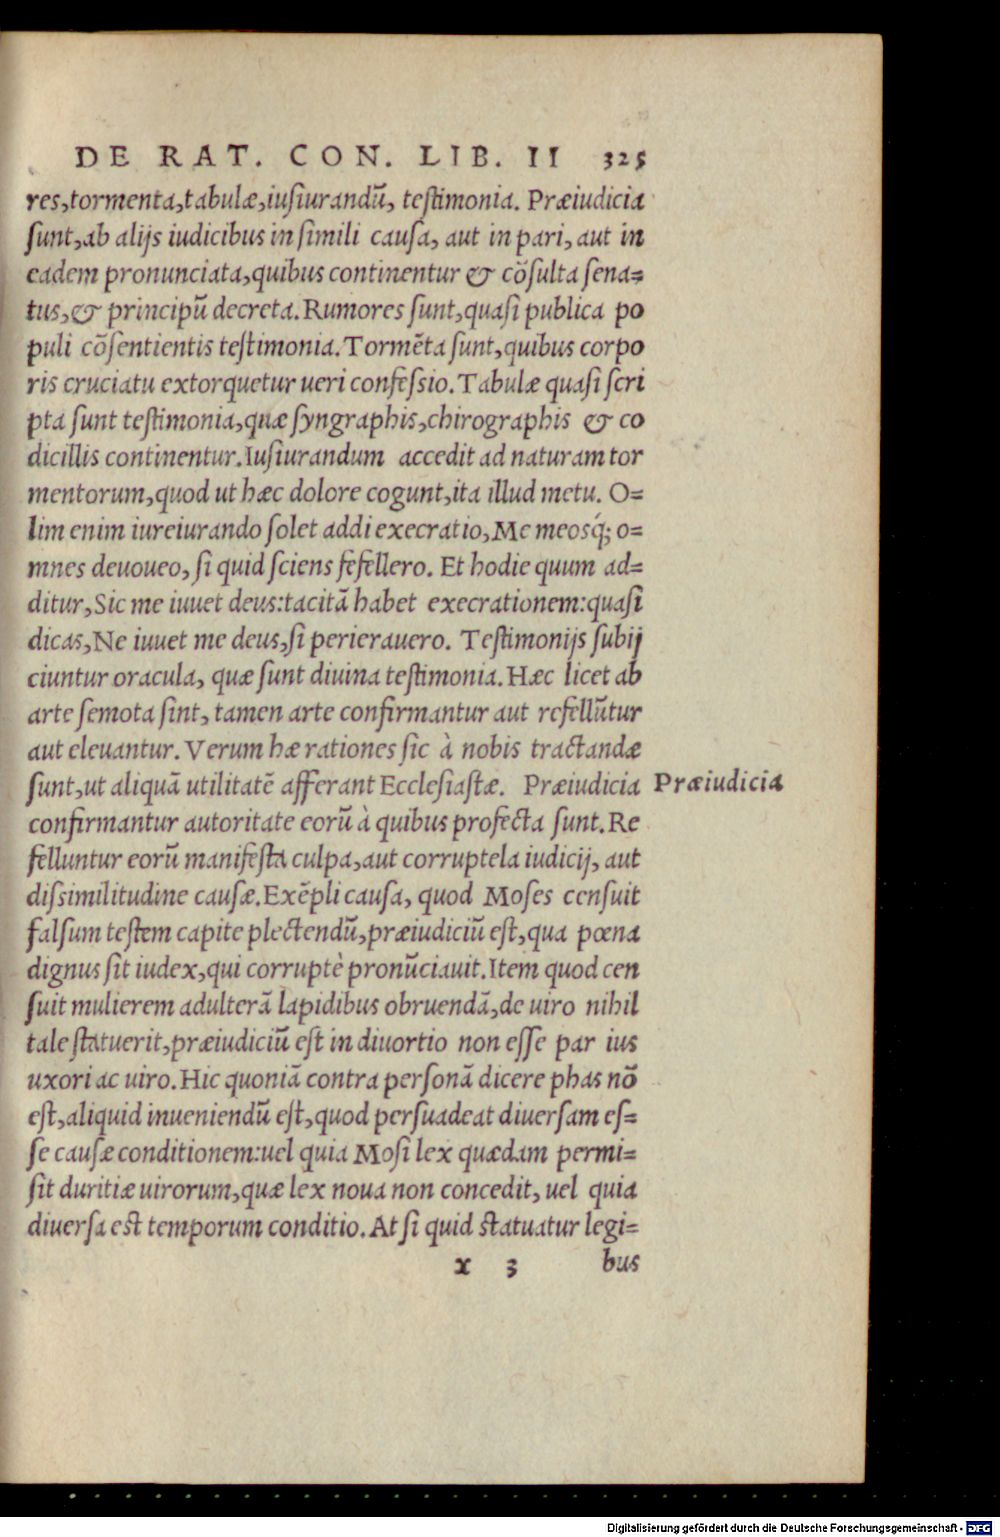 DE RAT. CON. LIB. II 325
res,tormenta,tabulæ,iusiurandũ, testimonia. Præiudicia
sunt,ab alijs iudicibus in simili causa, aut in pari, aut in
eadem pronunciata,quibus continentur & cõsulta sena=
tus,& principũ decreta.Rumores sunt,quasi publica po
puli cõsentientis testimonia.Tormẽta sunt,quibus corpo
ris cruciatu extorquetur ueri confessio.Tabulæ quasi scri
pta sunt testimonia,quæ syngraphis,chirographis & co
dicillis continentur.Iusiurandum accedit ad naturam tor
mentorum,quod ut hæc dolore cogunt,ita illud metu. O=
lim enim iureiurando solet addi execratio,Me meosq́; o=
mnes deuoueo, si quid sciens fefellero. Et hodie quum ad=
ditur,Sic me iuuet deus:tacitã habet execrationem:quasi
dicas,Ne iuuet me deus,si perierauero. Testimonijs subij
ciuntur oracula, quæ sunt diuina testimonia.Hæc licet ab
arte semota sint, tamen arte confirmantur aut refellũtur
aut eleuantur. Verum hæ rationes sic à nobis tractandæ
sunt,ut aliquã utilitatẽ afferant Ecclesiastæ. Præiudicia
Præiudicia
confirmantur autoritate eorũ à quibus profecta sunt.Re
felluntur eorũ manifesta culpa,aut corruptela iudicij, aut
dissimilitudine causæ.Exẽpli causa, quod Moses censuit
falsum testem capite plectendũ,præiudiciũ est,qua pœna
dignus sit iudex,qui corruptè pronũciauit.Item quod cen
suit mulierem adulterã lapidibus obruendã,de uiro nihil
tale statuerit,præiudiciũ est in diuortio non esse par ius
uxori ac uiro.Hic quoniã contra personã dicere phas nõ
est,aliquid inueniendũ est,quod persuadeat diuersam es=
se causæ conditionem:uel quia Mosi lex quædam permi=
sit duritiæ uirorum,quæ lex noua non concedit, uel quia
diuersa est temporum conditio. At si quid statuatur legi=
x 3 bus
Digitalisierung gefördert durch die Deutsche Forschungsgemeinschaft - DFG